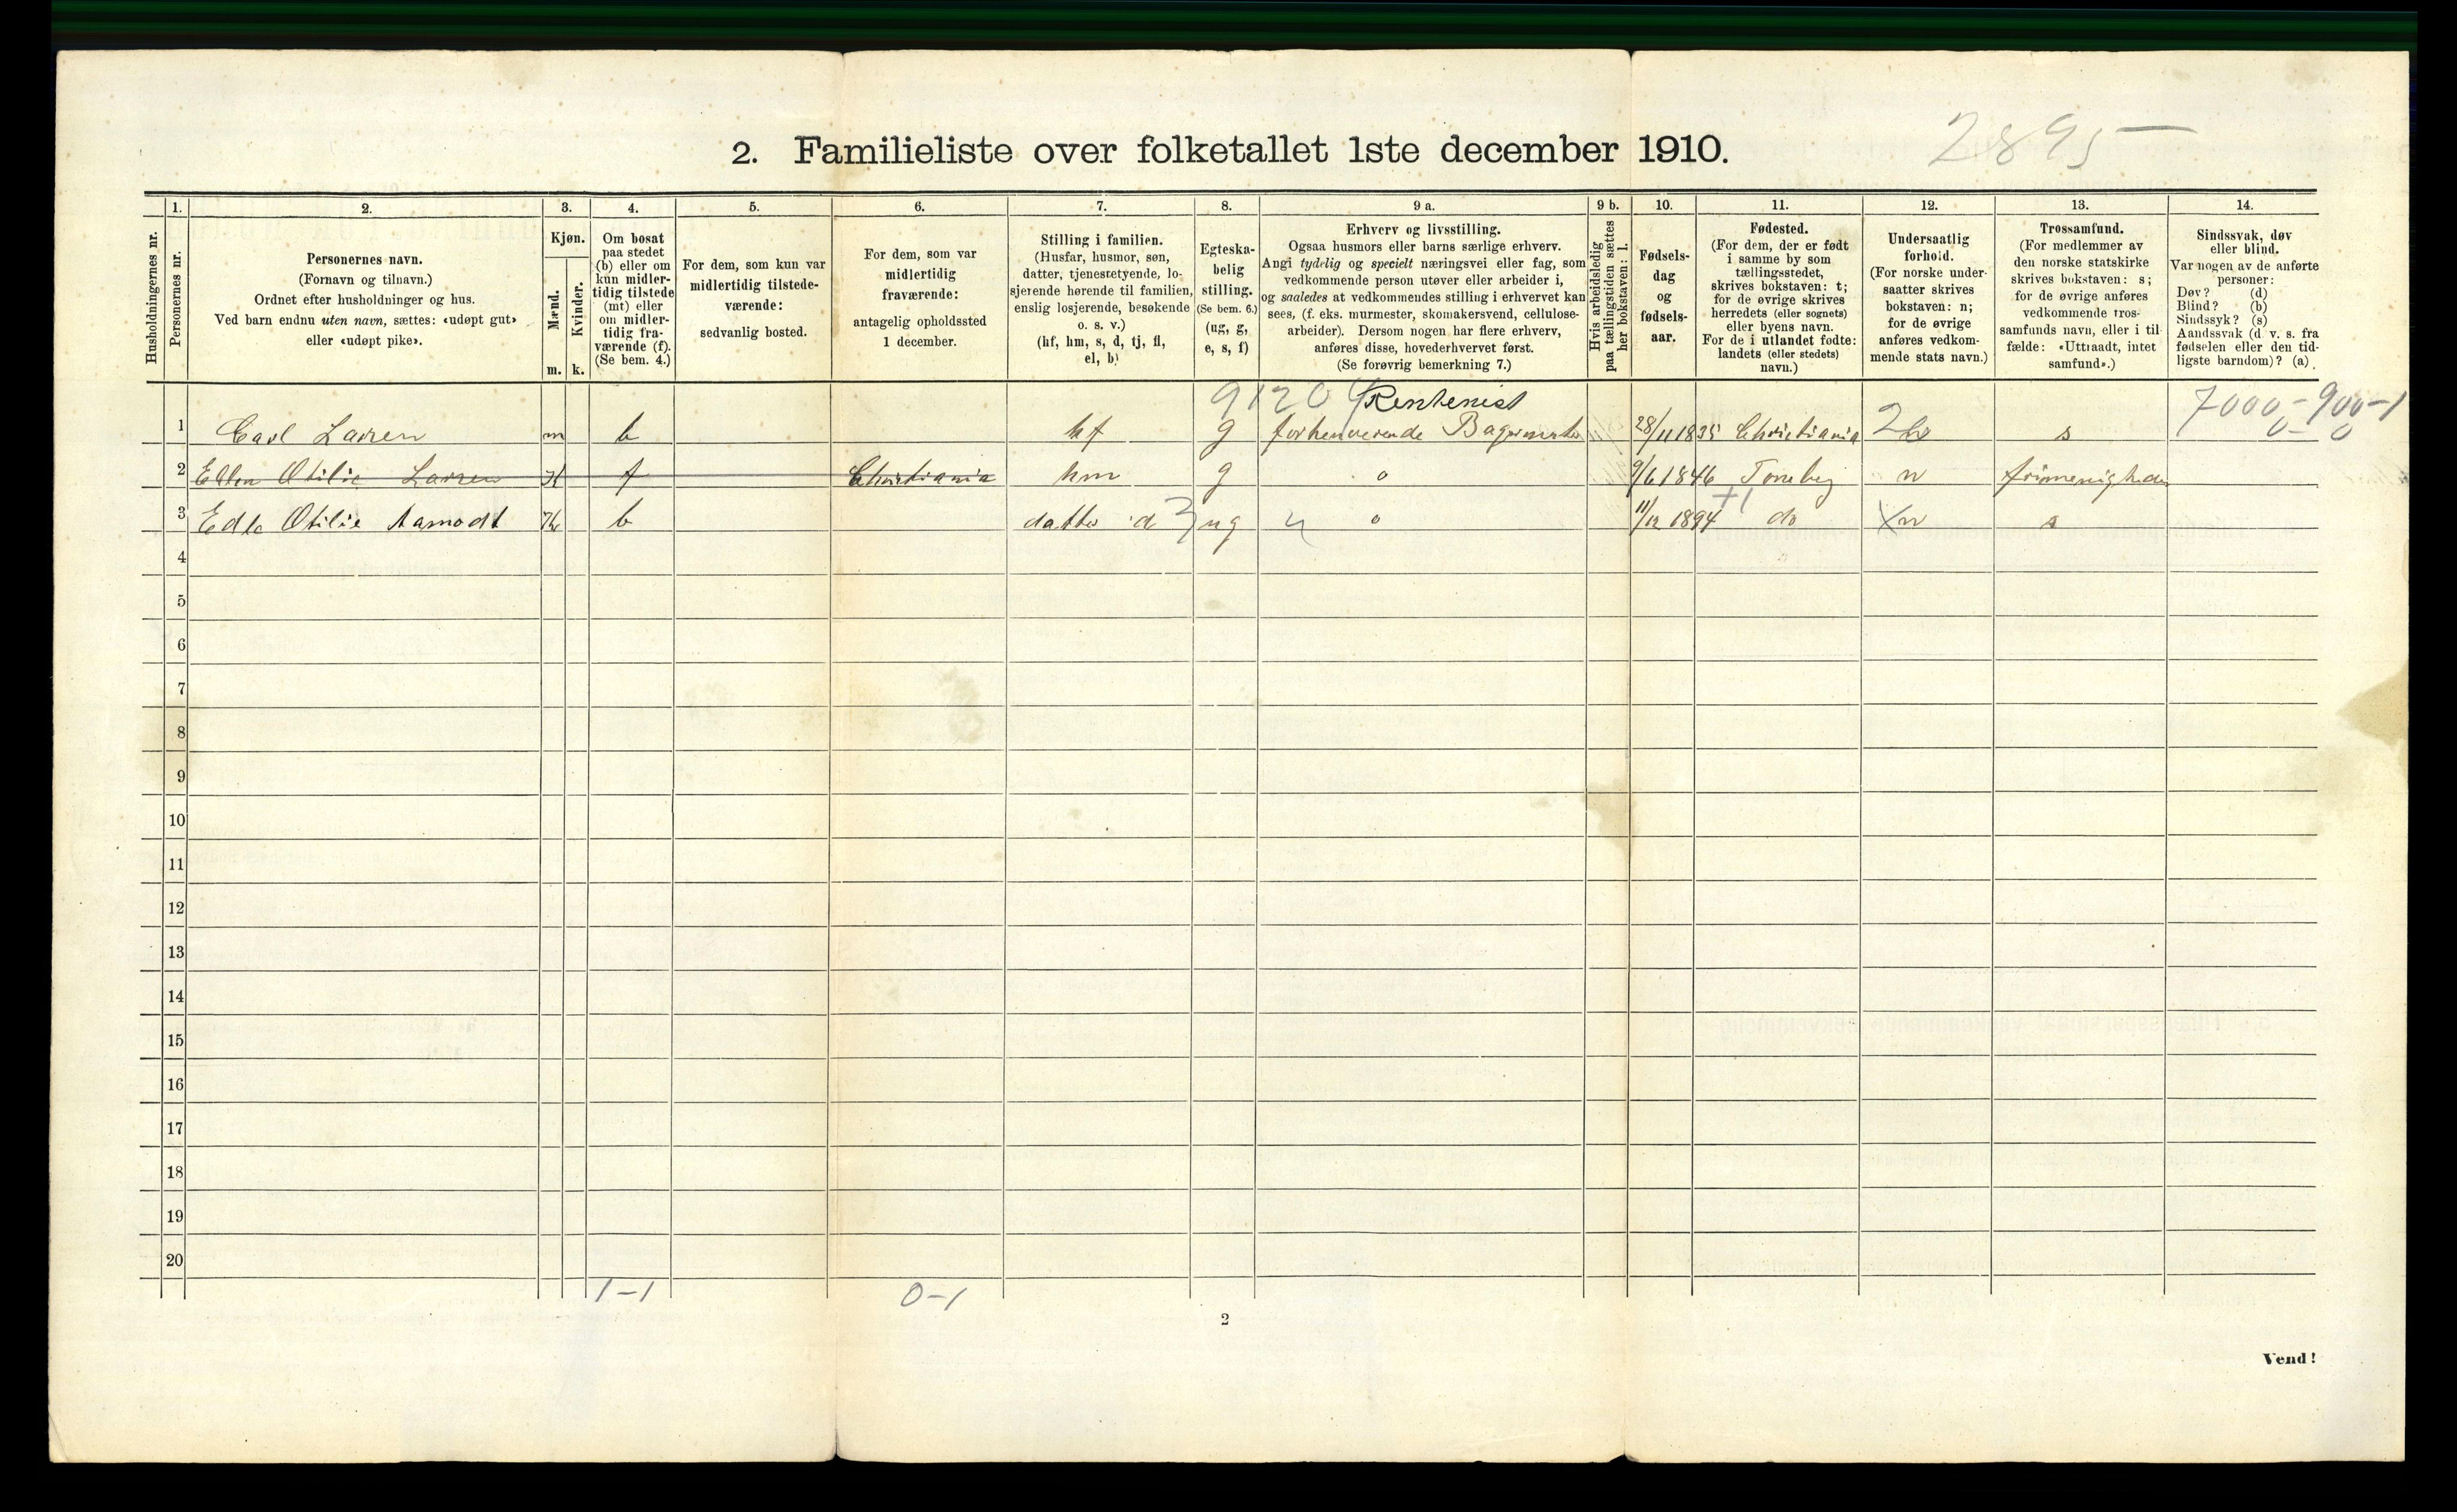 2895
2. Familieliste over folketallet 1ste december 1910.
Husholdningernes nr.
1.
Personernes nr.
2.
Personernes navn.
(Fornavn og tilnavn.)
Ordnet efter husholdninger og hus.
Ved barn endnu uten navn, sættes: «udøpt gut»
eller «udøpt pike».
3.
Kjøn.
Mænd.
Kvinder.
m.
k.
4.
Om bosat
paa stedet
(b) eller om
kun midler-
tidig tilstede
(mt) eller
om midler-
tidig fra-
værende (f).
(Se bem. 4.)
5.
For dem, som kun var
midlertidig tilstede-
værende:
sedvanlig bosted.
6.
For dem, som var
midlertidig
fraværende:
antagelig opholdssted
1 december.
7.
Stilling i familien.
(Husfar, husmor, søn,
datter, tjenestetyende, lo-
sjerende hørende til familien,
enslig losjerende, besøkende
o. s. v.)
(hf, hm, s, d, tj, fl,
el, b)
8.
Egteska-
belig
stilling.
(Se bem. 6.)
(ug, g,
e, s, f)
9 a.
Erhverv og livsstilling.
Ogsaa husmors eller barns særlige erhverv.
Angi tydelig og specielt næringsvei eller fag, som
vedkommende person utøver eller arbeider i,
og saaledes at vedkommendes stilling i erhvervet kan
sees, (f. eks. murmester, skomakersvend, cellulose-
arbeider). Dersom nogen har flere erhverv,
anføres disse, hovederhvervet først.
(Se forøvrig bemerkning 7.)
9 b.
Hvis arbeidsledig
paa tællingstiden sættes
her bokstaven: l.
10.
Fødsels-
dag
og
fødsels-
aar.
11.
Fødested.
(For dem, der er født
i samme by som
tællingsstedet,
skrives bokstaven: t;
for de øvrige skrives
herredets (eller sognets)
eller byens navn.
For de i utlandet fødte:
landets (eller stedets)
navn.)
12.
Undersaatlig
forhold.
(For norske under-
saatter skrives
bokstaven: n;
for de øvrige
anføres vedkom-
mende stats navn.)
13.
Trossamfund.
(For medlemmer av
den norske statskirke
skrives bokstaven: s;
for de øvrige anføres
vedkommende tros-
samfunds navn, eller i til-
fælde: «Uttraadt, intet
samfund».)
14.
Sindssvak, døv
eller blind.
Var nogen av de anførte
personer:
Døv? (d)
Blind? (b)
Sindssyk? (s)
Aandssvak (d. v. s. fra
fødselen eller den tid-
ligste barndom)? (a)
9120 Rentenist 7000-900-1
1 Carl Larsen m b hf g forhenverende 28/11 1835 Christiania s 0-0
2 Ellen Otilie Larsen K f Christiania hm g o 9/6 1846 n frimenigheden
3 Edle Otilie Aamodt K b datter d ug o 11/12 1894 do n s
4
5
6
7
8
9
10
11
12
13
14
15
16
17
18
19
20
1-1 0-1
2
Vend!